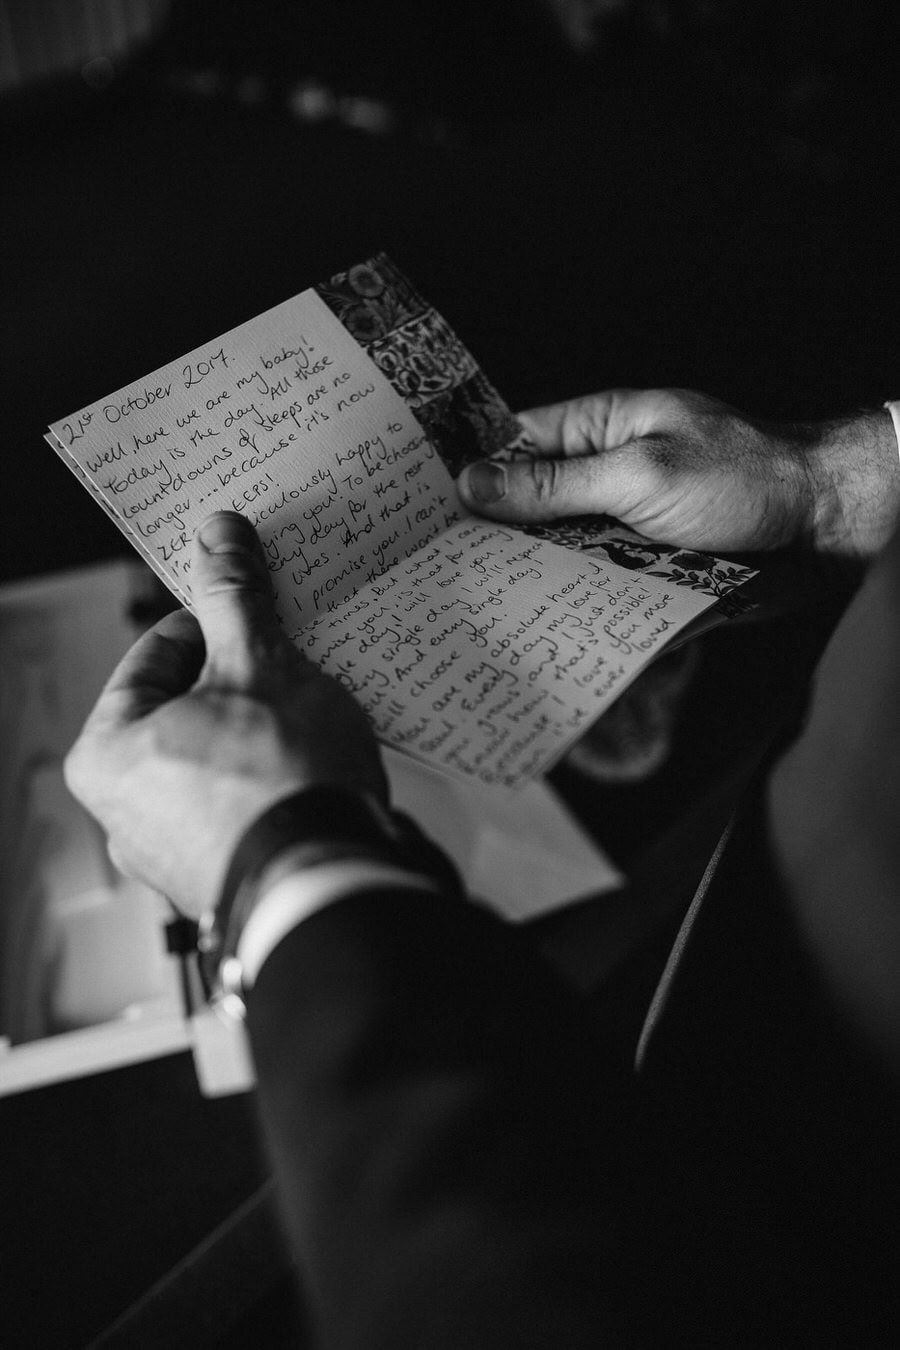 21st October 2017.
Well, here we are my baby!
Today is the day. All those
countdowns of sleeps are no
longer ... because it's now
ZER EEPS!
I'm iculously happy to
ying you. To be choosing
ery day for the rest
lives. And that is
t I promise you. I can't
mise that there won't be
d times. But what I can
omise you, is that for every
gle day, I will love you.
ery single day I will respect
you. And every single day I
will choose you.
You are my absolute heart &
soul. Every day my love for
you grows and I just don't
know how that's possible!
because I love you more
than I've ever loved